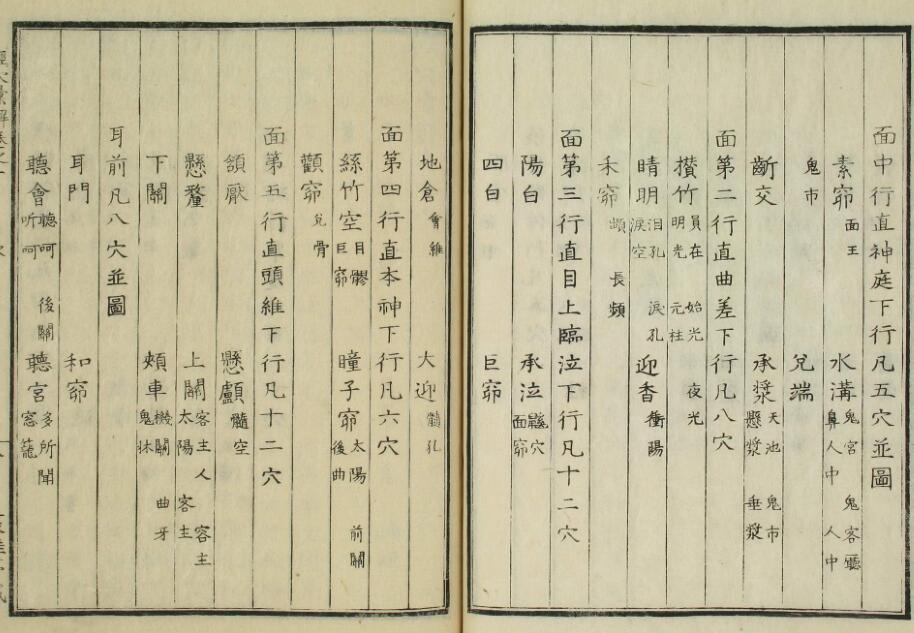 面中行直神庭下行凡五穴並圖
素窌 面王 水溝 鬼宮 鼻人中 鬼客廳 人中
鬼市 兌端
齗交 承漿 天池 懸漿 鬼市 垂漿
面第二行直曲差下行凡八穴
攢竹 員在 明光 始光 元柱 夜光
睛明 泪孔 淚空 淚孔 迎香 衝陽
禾窌 長頻
面第三行直目上臨泣下行凡十二穴
陽白 承泣 鼷穴 面窌
四白 巨窌
地倉 會維 大迎 髓孔
面第四行直本神下行凡六穴
絲竹空 目髎 巨窌 瞳子窌 太陽 後曲 前關
顴窌 兌骨
面第五行直頭維下行凡十二穴
頷厭 懸顱 髓空
懸釐 上關 客主人 太陽 容主 客主
下關 頰車 機關 鬼牀 曲牙
耳前凡八穴並圖
耳門 和窌
聽會 聽呵 听呵 後關 聽宮 多所聞 窓籠